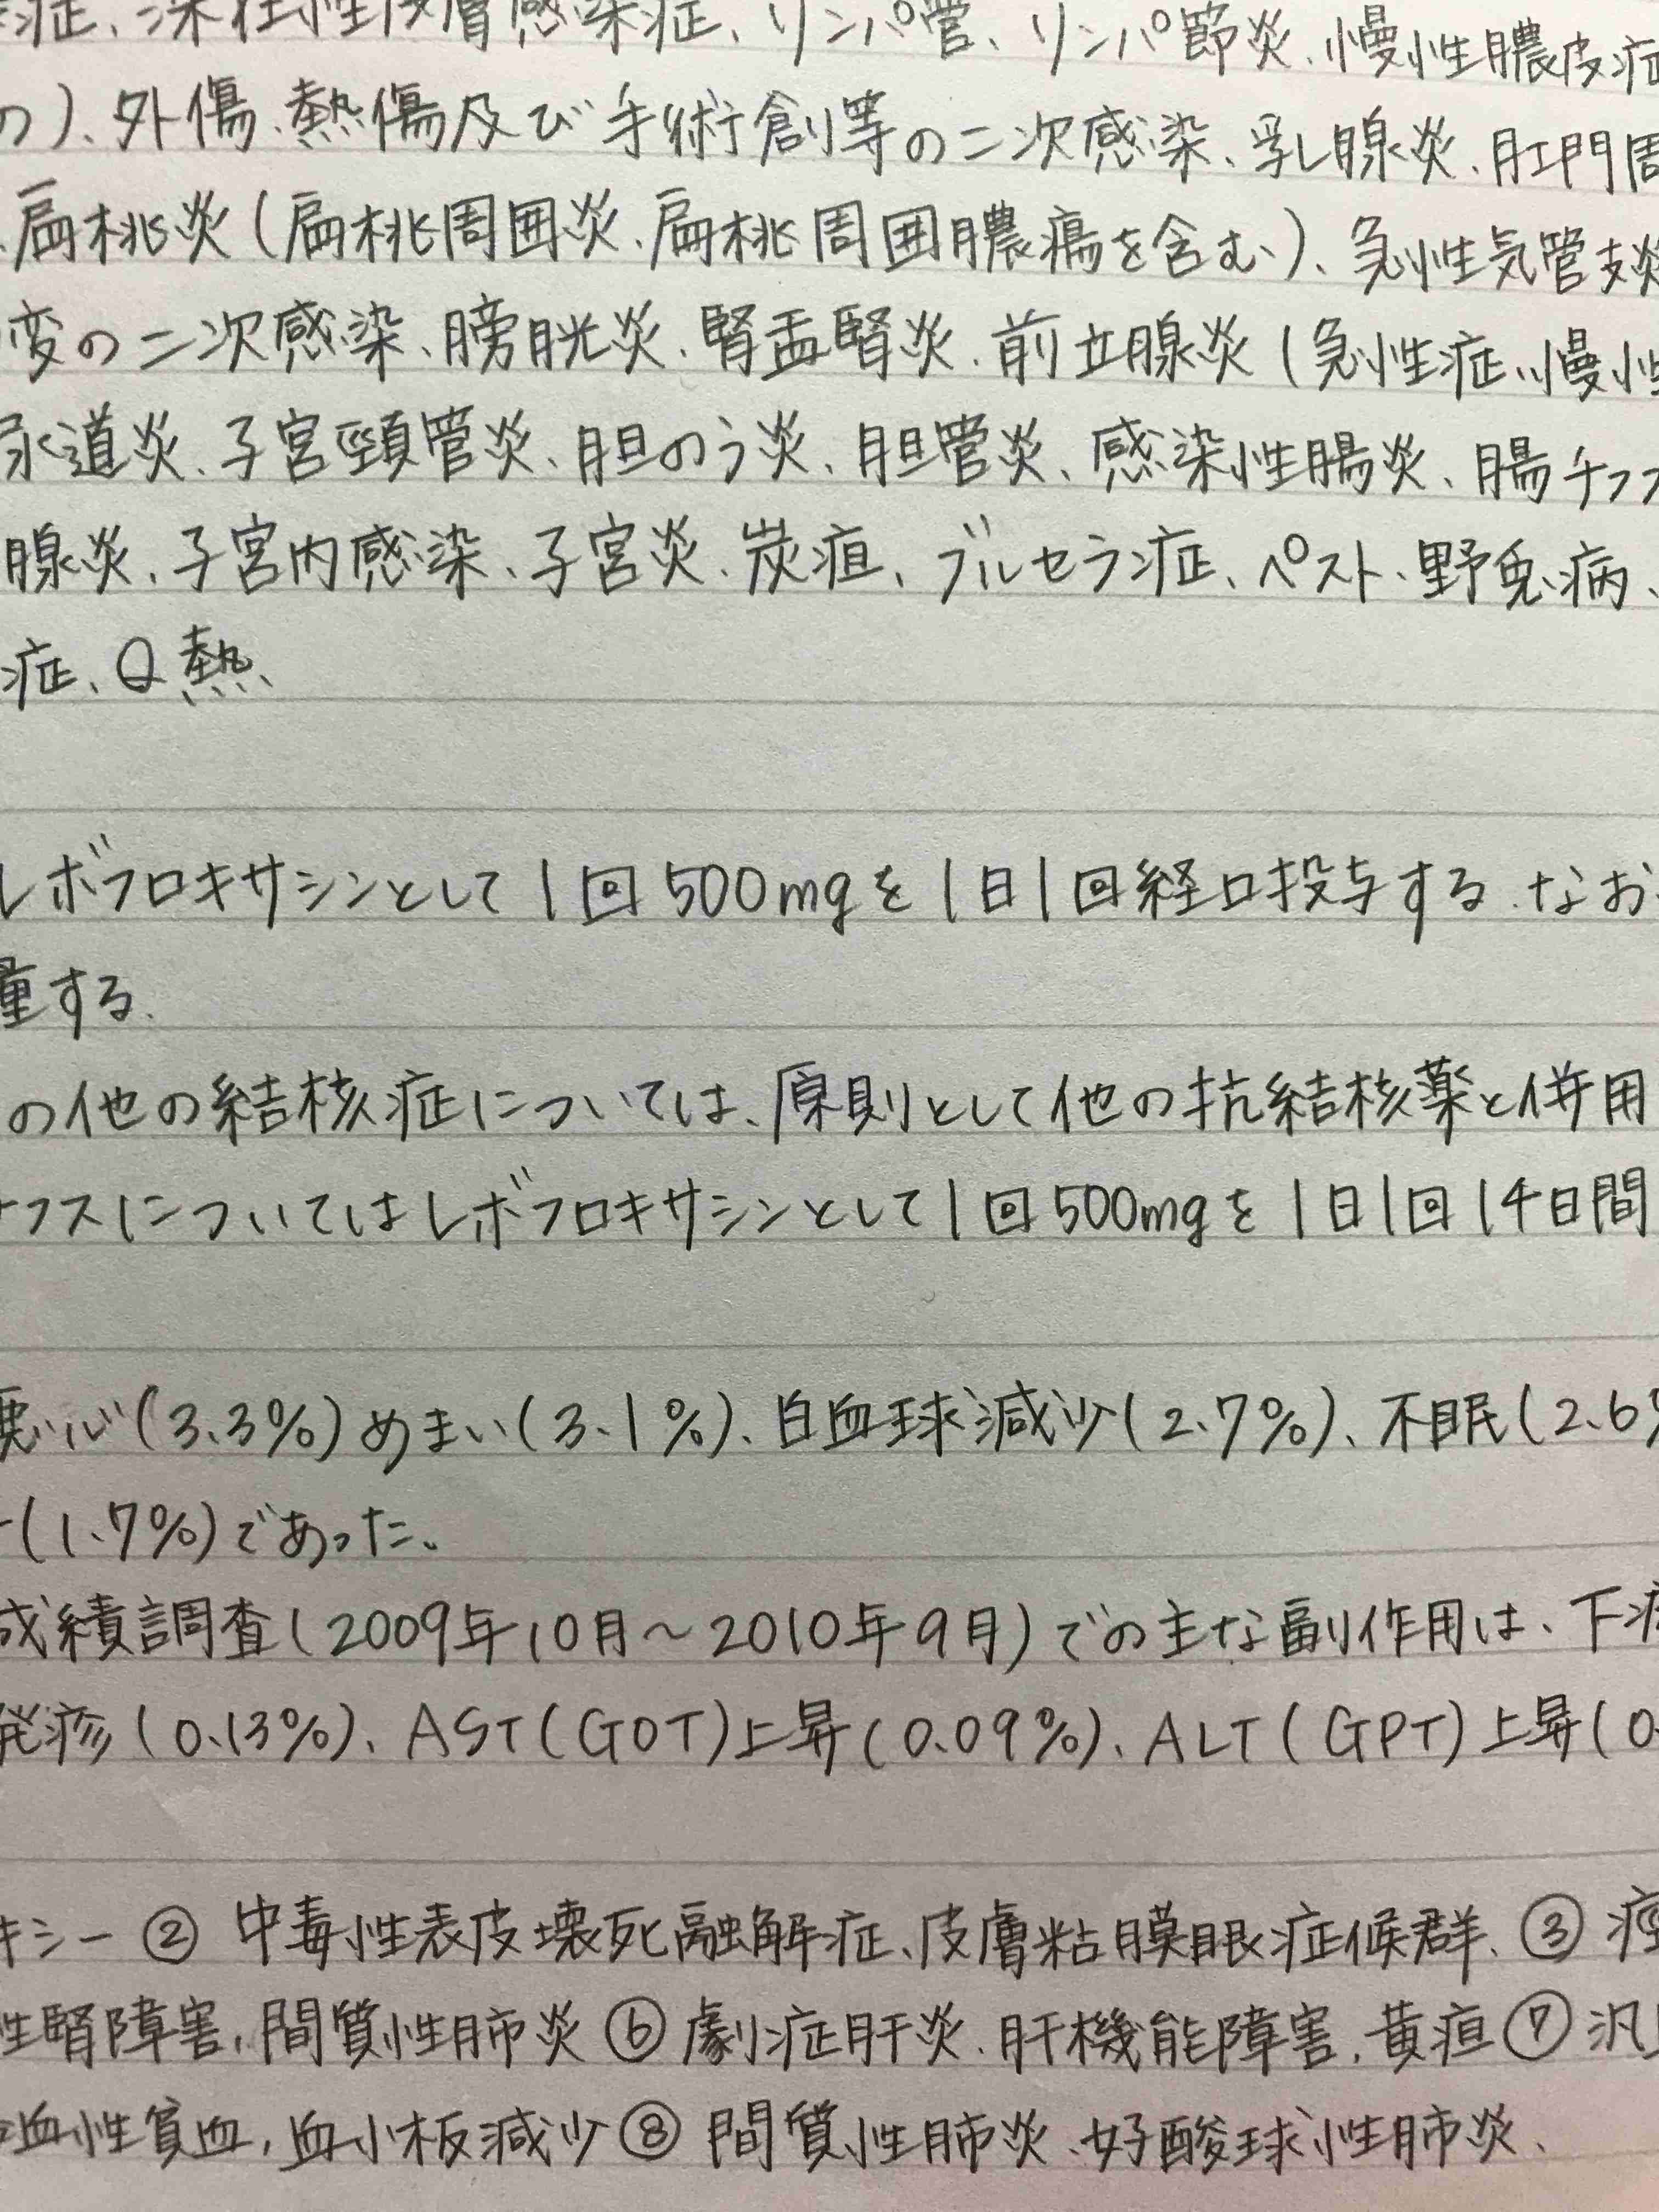 症、深在性皮膚感染症、リンパ管、リンパ節炎、慢性膿皮症
の)、外傷、熱傷及び手術創等の二次感染、乳腺炎、肛門周
、扁桃炎(扁桃周囲炎、扁桃周囲膿瘍を含む)、急性気管支炎
変の二次感染、膀胱炎、腎盂腎炎、前立腺炎(急性症、慢性
尿道炎、子宮頸管炎、胆のう炎、胆管炎、感染性腸炎、腸チフス
腺炎、子宮内感染、子宮炎、炭疽、ブルセラ症、ペスト、野兎病、
症、Q熱
レボフロキサシンとして1回500mgを1日1回経口投与する。なお
量する。
の他の結核症については、原則として他の抗結核薬と併用
チフスについてはレボフロキサシンとして1回500mgを1日1回14日間
悪心(3.3%)めまい(3.1%)、白血球減少(2.7%)、不眠(2.6%
(1.7%)であった。
成績調査(2009年10月〜2010年9月)での主な副作用は、下痢
発疹(0.13%)、AST(GOT)上昇(0.09%)、ALT(GPT)上昇(0.
キシー ② 中毒性表皮壊死融解症、皮膚粘膜眼症候群、③ 痙
性腎障害,間質性肺炎 ⑥ 劇症肝炎、肝機能障害,黄疸 ⑦ 汎血
溶血性貧血,血小板減少 ⑧ 間質性肺炎、好酸球性肺炎、